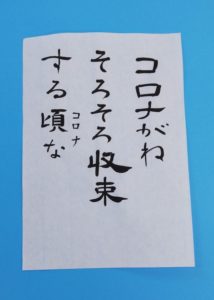 コロナがね
そろそろ収束
する頃な
コロナ